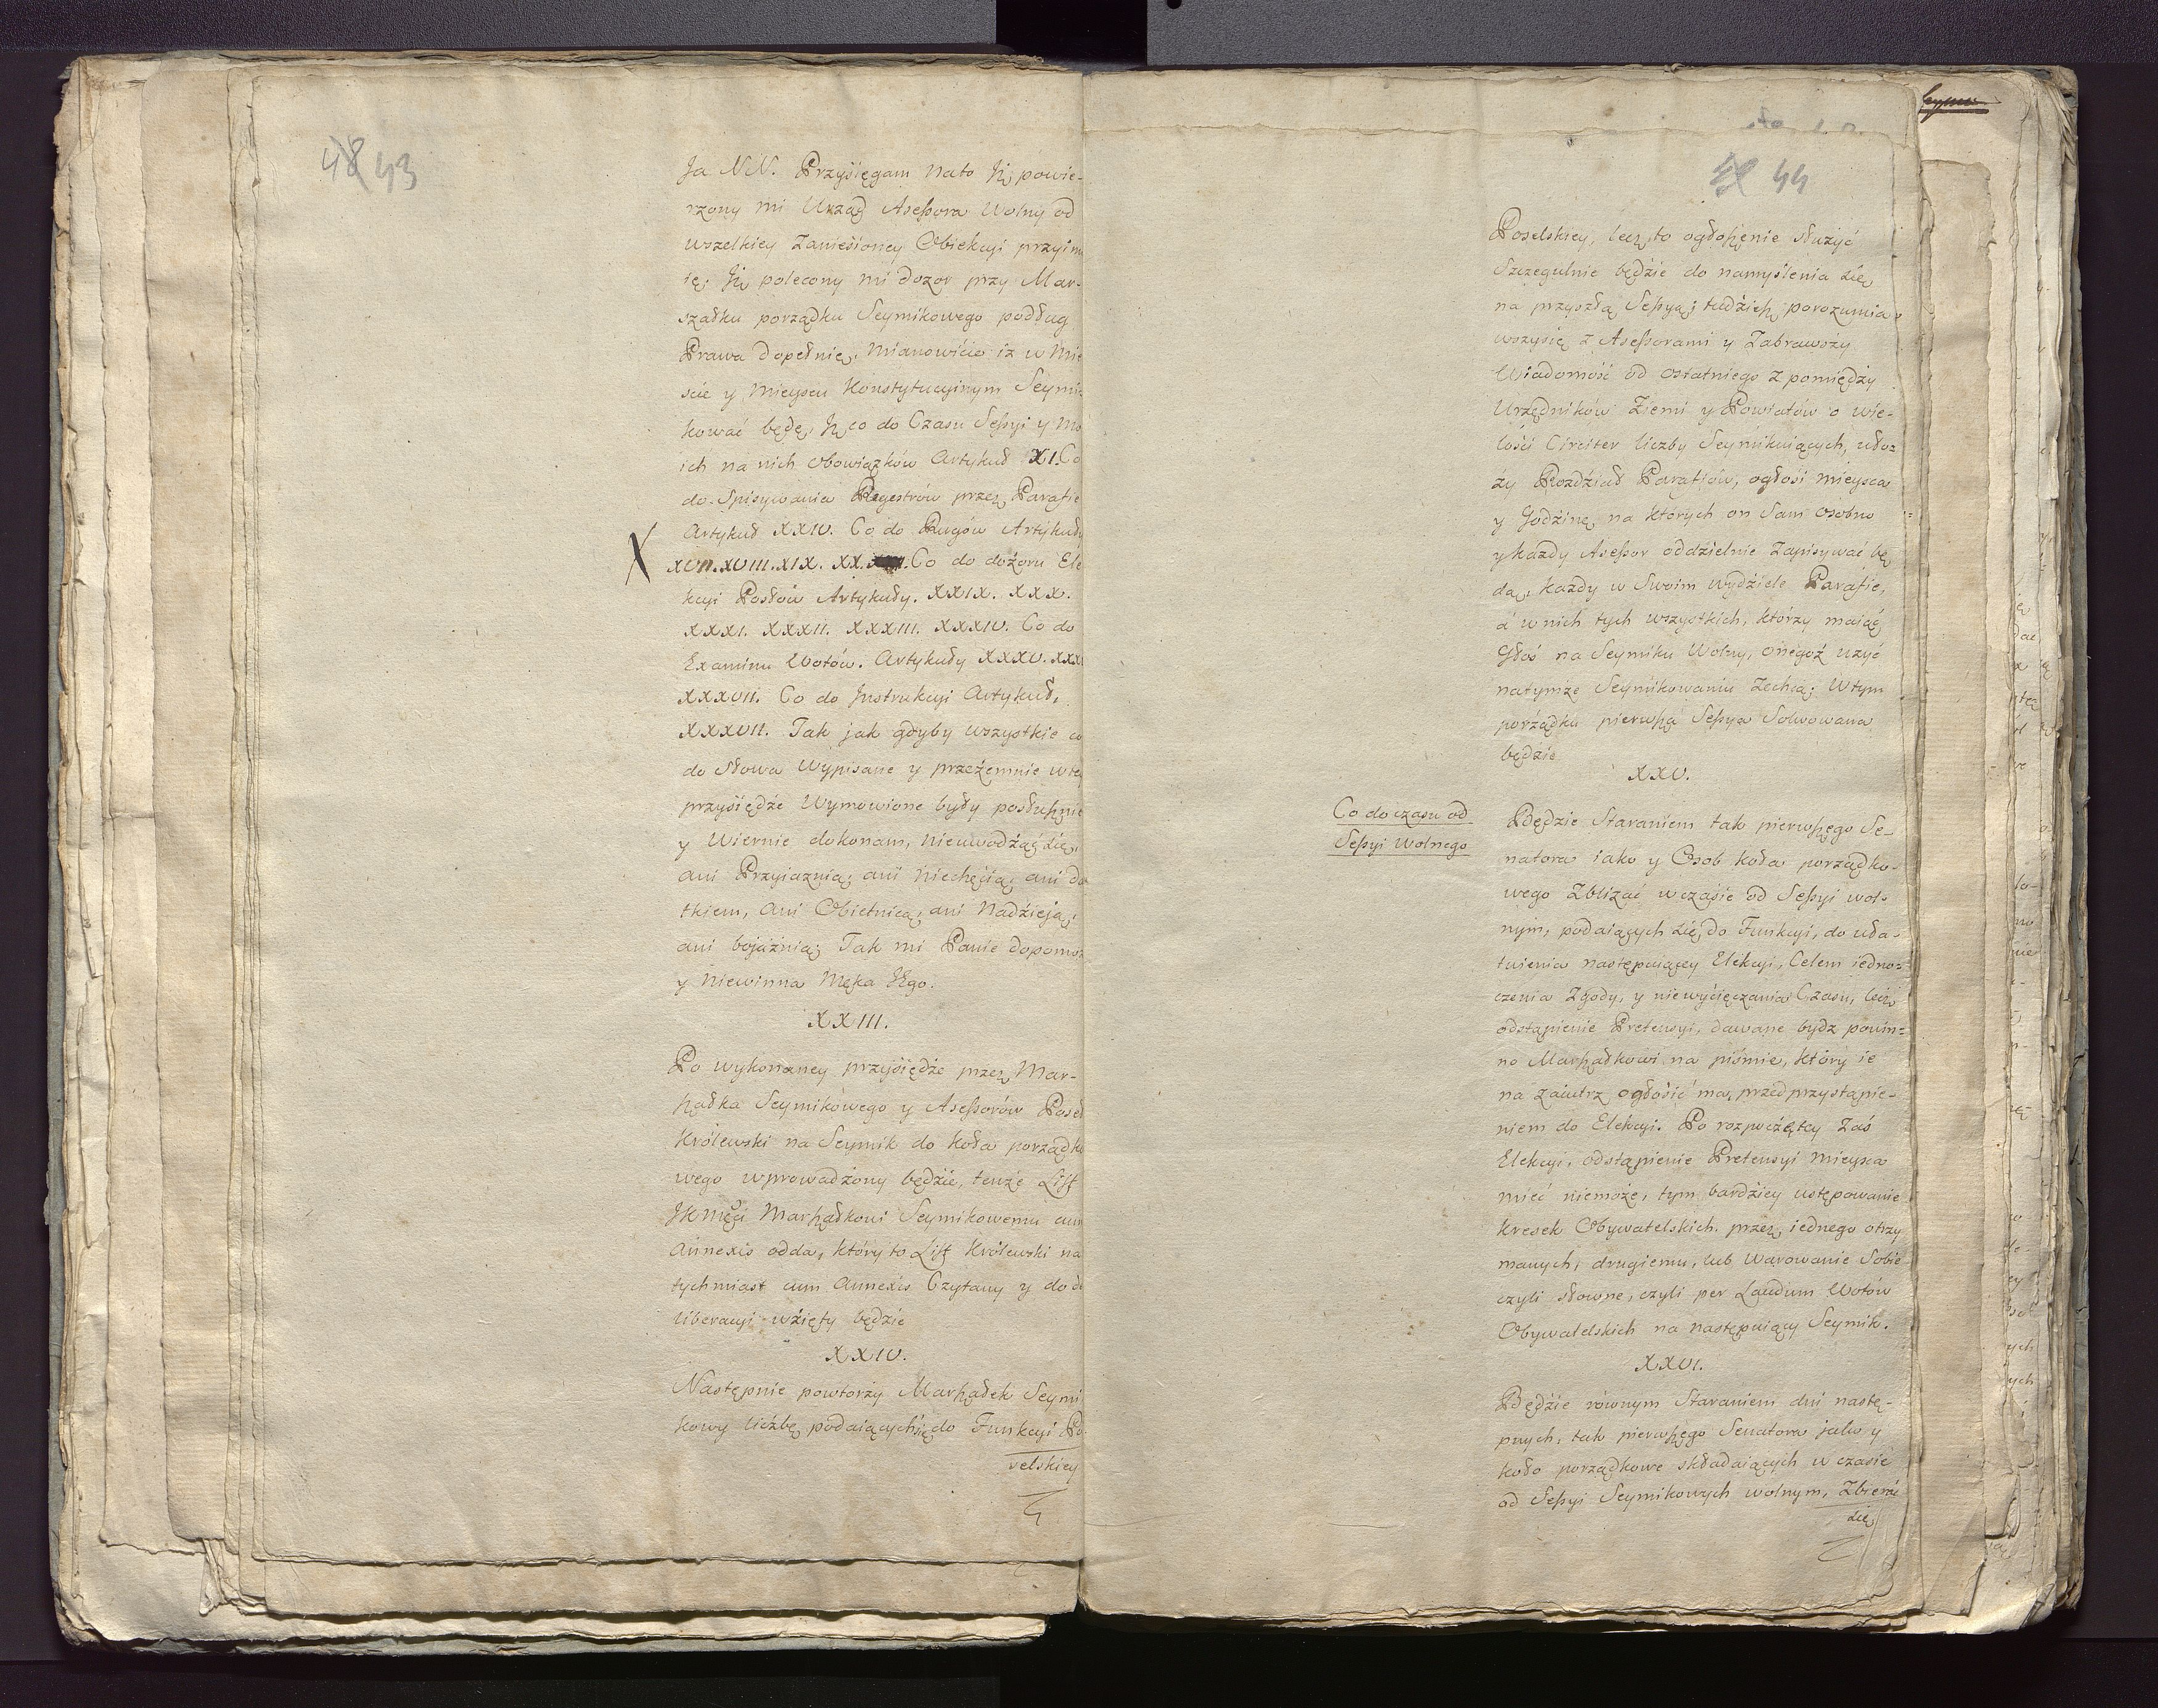 48 43
Ja NN. Przysięgam na to Jż powie-
rzony mi Urząd Asessora Wolny od
wszelkiey zaniesioney Obiekcyi przyim
ię. Jż polecony mi dozor przy Mar-
szałku porządku Seymikowego podług
Prawa dopełnię, mianowicie iż w Mie
ście y mieyscu Konstytucyinym Seymi-
kować będę, Jż co do Czasu Sessyi y mo
ich na nich obowiązków Artykuł XI. Co
do Spisywania Regestrów przez Parafie
Artykuł XXIV. Co do Rugów Artykuły
XVII. XVIII. XIX. XX. Co do dożoru Ele
kcyi Posłów Artykuły. XXIX. XXX.
XXXI. XXXII. XXXIII. XXXIV. Co do
Examinu Wotów. Artykuły XXXV. XXXV
XXXVII. Co do Jnstrukcyi Artykuł,
XXXVII. Tak jak gdyby wszystkie co
do słowa wypisane y przezemnie w tey
przysiędze Wymowione były posłusznie
y Wiernie dokonam, nieuwodząć się,
ani Przyiaznią; ani niechęcią; ani da
tkiem, ani Obietnicą, ani Nadzieją,
ani bojaźnią; Tak mi Panie dopomoż
y Niewinna Męka JEgo.
XXIII.
Po wykonaney przysiędze przez Mar-
szałka Seymikowego y Asessorów Poseł
Królewski na Seymik do koła porządko
wego wprowadzony będzie, tenże List
JKMści Marszałkowi Seymikowemu cum
Annexis odda, który to List Królewski na
tychmiast cum Annexis Czytany y do de
liberacyi wzięty będzie
XXIV.
Następnie powtorzy Marszałek Seymi
kowy liczbę podaiących się do Funkcyi Po
selskiey
44
Poselskiey, lecz to ogłoszenie służyć
Szczegulnie będzie do namyślenia się
na przyszłą Sessyą; tudzież porozumia
wszysię z Asessorami y Zabrawszy
Wiadomość od ostatniego z pomiędzy
Urzędników Ziemi y Powiatów o wie-
lości Circiter liczby Seymikuiących, uło-
ży Rozdział Parafiów, ogłosi mieysca
y Godzinę, na których on Sam osobno
y kazdy Asessor oddzielnie Zapisywać bę
dą, kazdy w Swoim wydziele Parafie,
a w nich tych wszystkich, którzy maiąć
Głos na Seymiku Wolny, onegoż uzyć
natymże Seymikowaniu Zechcą; W tym
porządku pierwszą Sessya Solwowana
będzie
XXV.
Co do czasu od
Sessyi Wolnego
Będzie Staraniem tak pierwszego Se-
natora iako y Osob koła porządko-
wego Zblizać w czasie od Sessyi wol-
nym, podaiących się do Funkcyi, do uła-
twienia następuiącey Elekcyi, Celem iedno-
czenia Zgody, y niewycięczania Czasu, lecz
odstąpienie Pretensyi, dawane bydz powin-
no Marszałkowi na piśmie, który ie
na zaiutrz ogłosić ma, przed przystąpie-
niem do Elekcyi. Po rozpoczętey Zaś
Elekcyi, odstąpienie Pretensyi mieysca
mieć niemoże, tym bardziey ustępowanie
kresek Obywatelskich przez iednego otrzy
manych, drugiemu, lub Warowanie Sobie
czyli słowne, czyli per Laudum Wotów
Obywatelskich na następuiący Seymik.
XXVI.
Będzie równym Staraniem dni nastę-
pnych, tak pierwszego Senatora jako y
koło porządkowe składaiących w czasie
od Sessyi Seymikowych wolnym, Zbierać
się